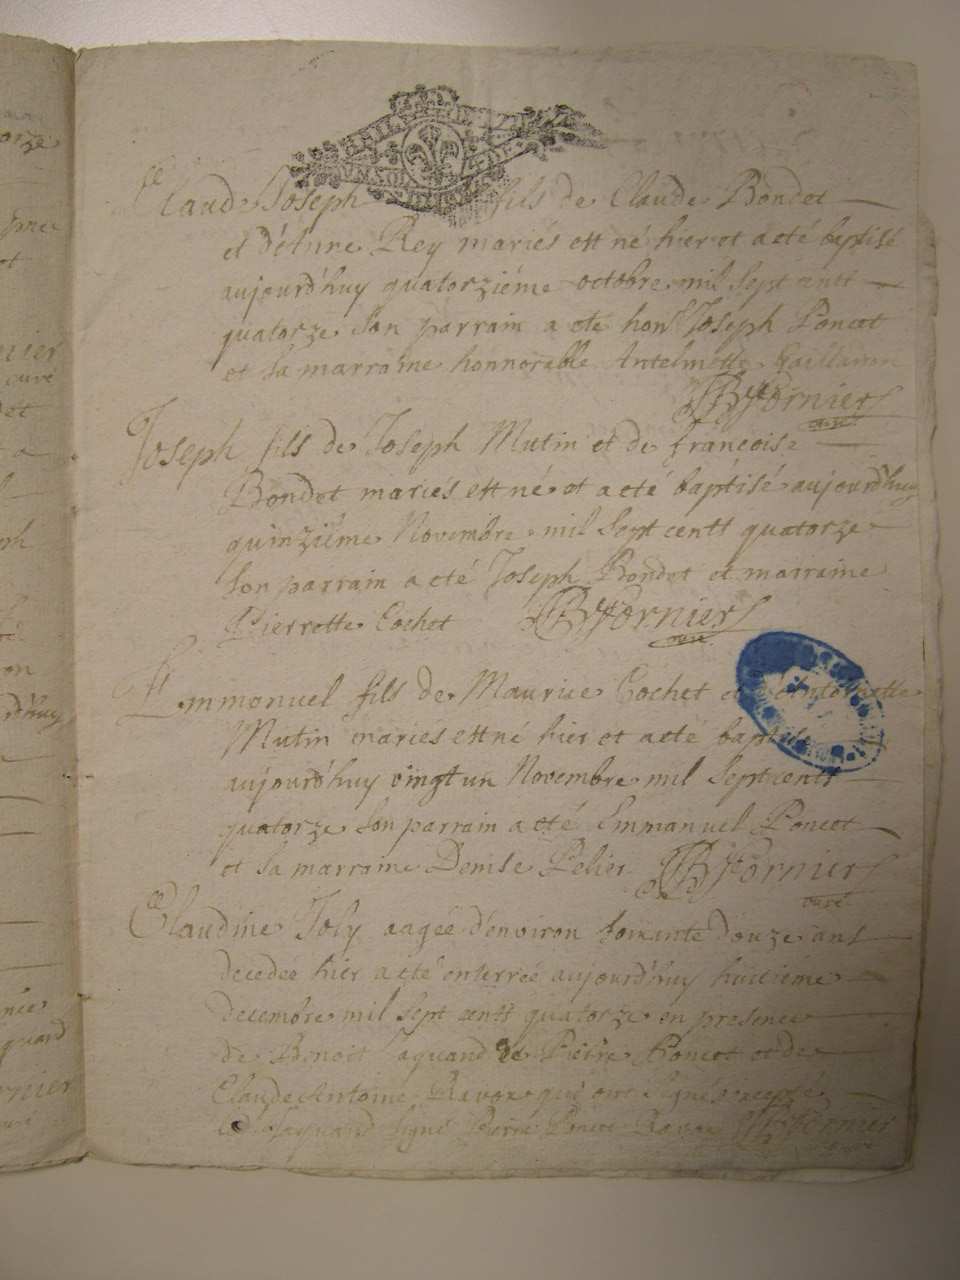 Claude Joseph fils de Claude Bondet
et d'Anne Rey mariés est né hier et a eté baptisé
aujourd'huy quatorziéme octobre mil sept cents
quatorze son parrain a ete hon. Joseph Poncet
et sa marraine honnorable Antelmette
JB Fornier
curé
Joseph fils de Joseph Mutin et de francoise
Bondet mariés est né et a eté baptisé aujourd'huy
quinziéme Novembre mil sept centt quatorze
son parrain a eté Joseph Bondet et marraine
Pierrette Cochet JB Fornier
curé
Emmonuel fils de Maurice Cochet et
Mutin mariés est né hier et a eté baptisé
aujourd'huy vingt un Novembre mil sept cents
quatorze son parrain a eté Emmanuel Poncet
et sa marraine Denise Pelier JB Fornier
curé
Claudine Joly aagée d'environ soixante douze ans
decedée hier a eté enterrée aujourd'huy huitiéme
decembre mil sept centt quatorze en presence
de Benoit Jaquand et Pierre Poncet et de
Claude Antoine Ravoz qui ont signés excepté
led. Jaquand signé Pierre Poncet Ravoz JB Fornier
curé